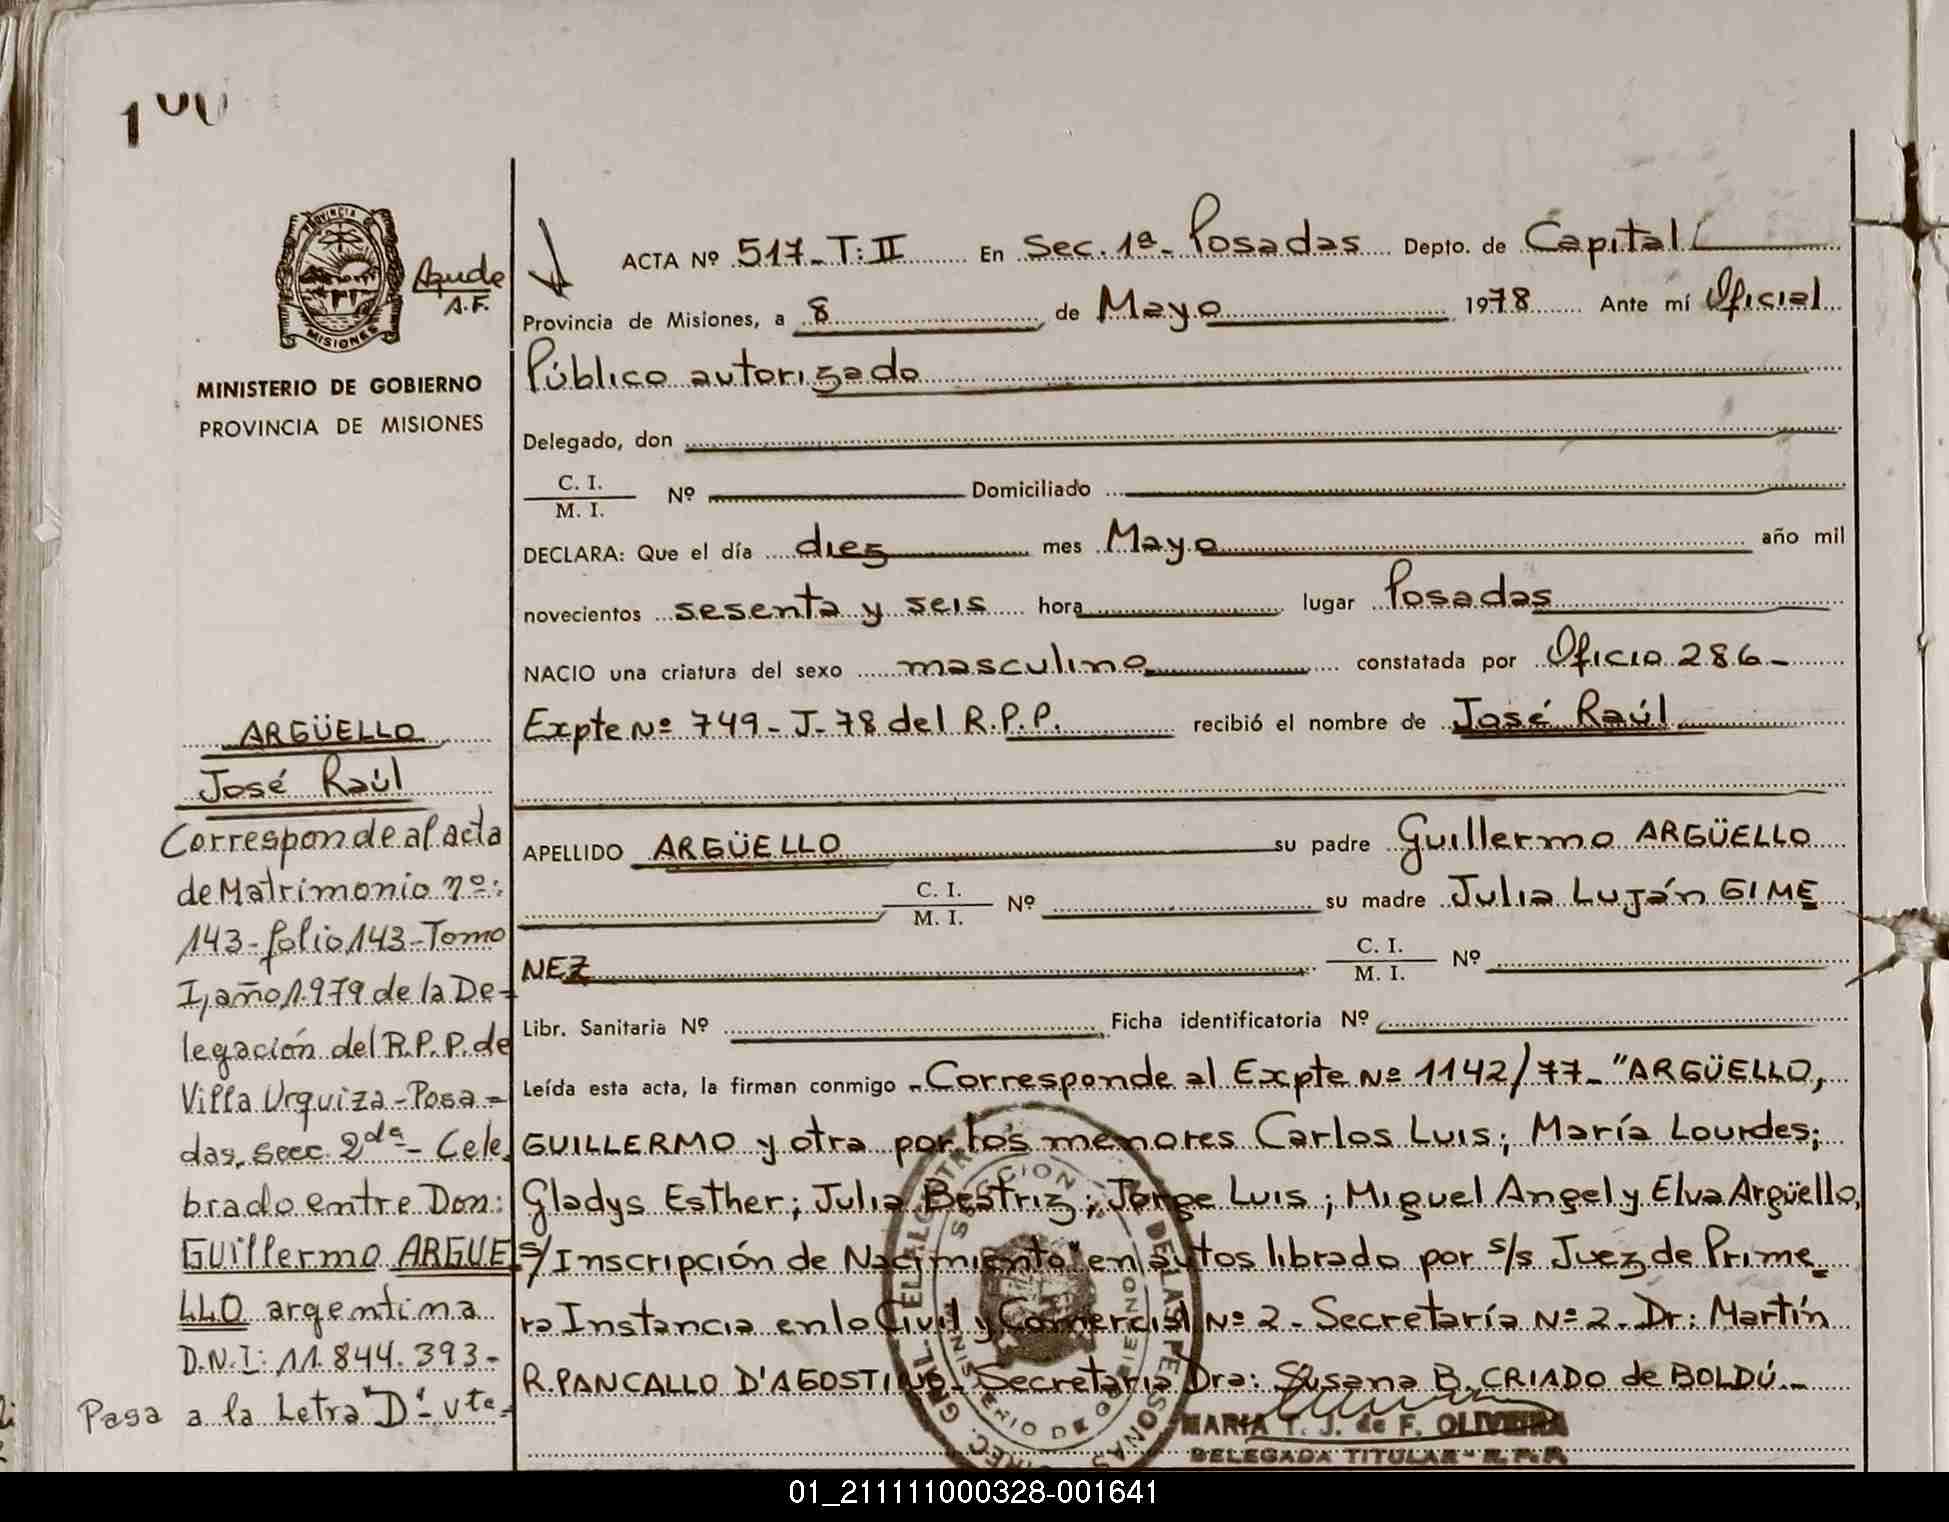 100
PROVINCIA DE
MISIONES
A.F.
MINISTERIO DE GOBIERNO
PROVINCIA DE MISIONES
ARGÜELLO
José Raúl
Corresponde al acta
de Matrimonio nº:
143-folio 143-Tomo
I, año 1.979 de la De-
legación del R.P.P. de
Villa Urquiza-Posa-
das, secc. 2da- Cele
brado entre Don:
Guillermo ARGUE
LLO argentina
D.N.I: 11.844.393-
Pasa a la Letra "D"- vta-
ACTA Nº 517-T:II En Sec. 1ª- Posadas Depto. de Capital
Provincia de Misiones, a 8 de Mayo 1978 Ante mí Oficial
Público autorizado
Delegado, don
C. I.
M. I. Nº Domiciliado
DECLARA: Que el día diez mes Mayo año mil
novecientos sesenta y seis hora lugar Posadas
NACIO una criatura del sexo masculino constatada por Oficio 286-
Expte Nº 749-J-78 del R.P.P. recibió el nombre de José Raúl
APELLIDO ARGÜELLO su padre Guillermo ARGÜELLO
C. I.
M. I. Nº su madre Julia Luján GIME
NEZ C. I.
M. I. Nº
Libr. Sanitaria Nº Ficha identificatoria Nº
Leída esta acta, la firman conmigo -Corresponde al Expte Nº 1142/77-"ARGÜELLO,
GUILLERMO y otra por los menores Carlos Luis; María Lourdes;
Gladys Esther; Julia Beatriz; Jorge Luis; Miguel Angel y Elva Argüello,
s/Inscripción de Nacimiento" en autos librado por s/s Juez de Prime-
ra Instancia en lo Civil y Comercial Nº 2- Secretaría Nº 2- Dr: Martín
R. PANCALLO D'AGOSTINO- Secretaria Dra: Susana B. CRIADO de BOLDÚ.-
MARIA T. J. de F. OLIVEIRA
DELEGADA TITULAR - R.P.P.
01_211111000328-001641